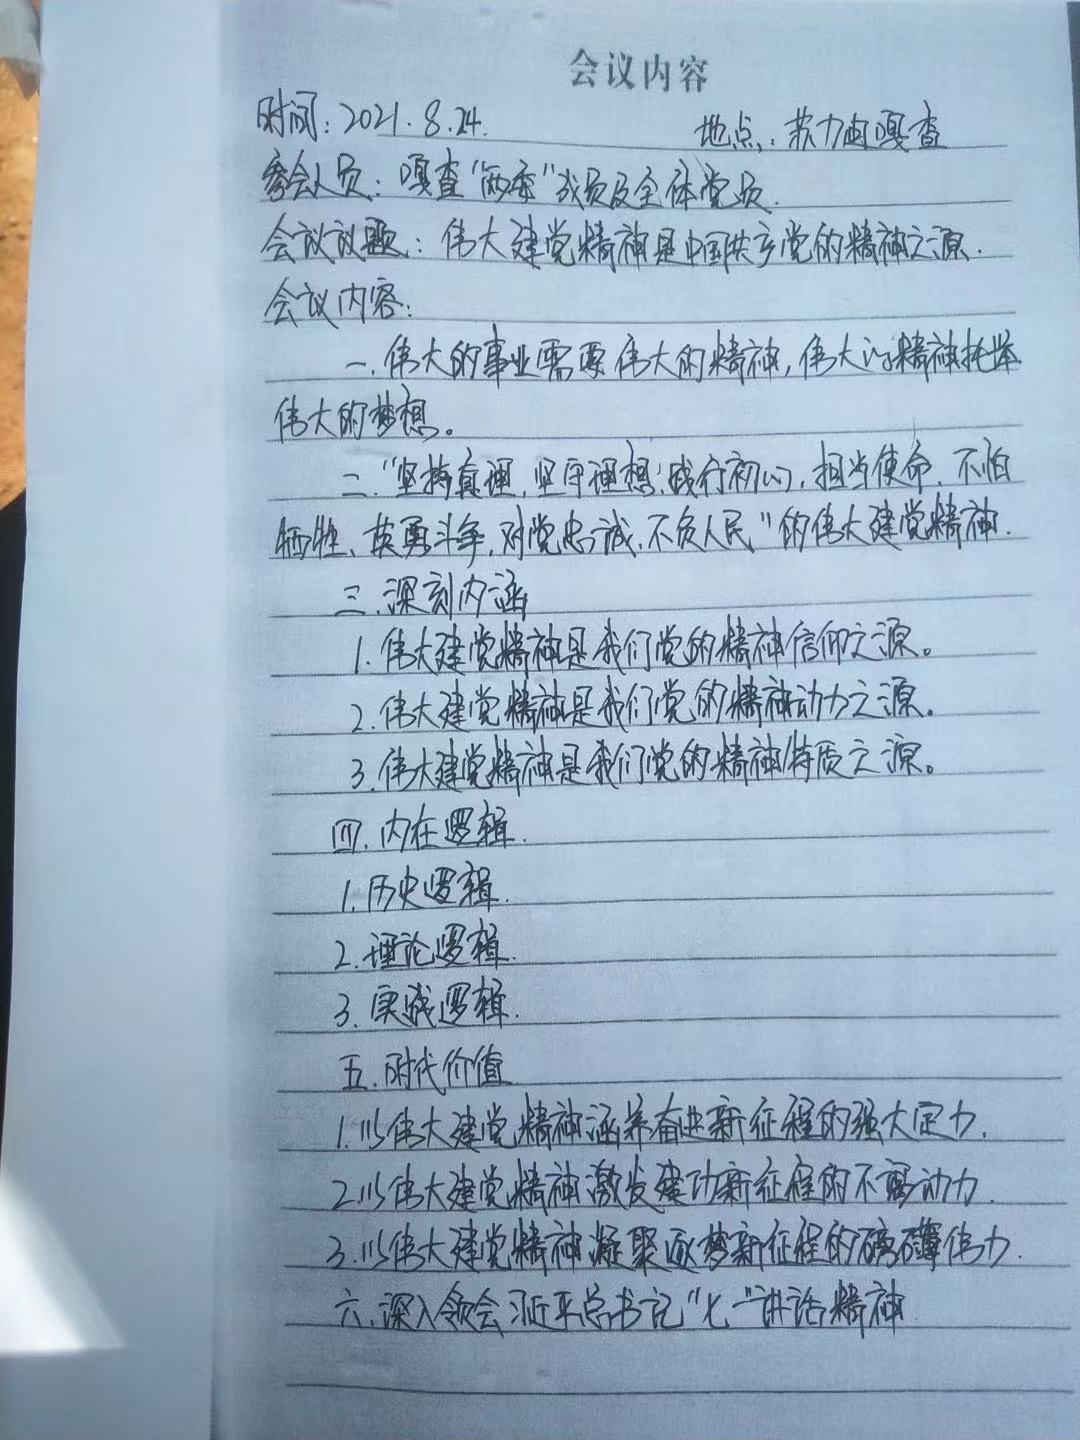 会议内容
时间：2021.8.24. 地点：苏力由嘎查
参会人员：嘎查“两委”成员及全体党员.
会议议题：伟大建党精神是中国共产党的精神之源.
会议内容：
一.伟大的事业需要伟大的精神,伟大的精神托举
伟大的梦想。
二.“坚持真理,坚守理想;践行初心,担当使命.不怕
牺牲、英勇斗争,对党忠诚,不负人民”的伟大建党精神.
三.深刻内涵
1.伟大建党精神是我们党的精神信仰之源。
2.伟大建党精神是我们党的精神动力之源。
3.伟大建党精神是我们党的精神特质之源。
四.内在逻辑.
1.历史逻辑.
2.理论逻辑.
3.实践逻辑.
五.时代价值
1.以伟大建党精神涵养奋进新征程的强大定力.
2.以伟大建党精神激发建功新征程的不竭动力.
3.以伟大建党精神凝聚逐梦新征程的磅礴伟力.
六.深入领会习近平总书记“七一”讲话精神